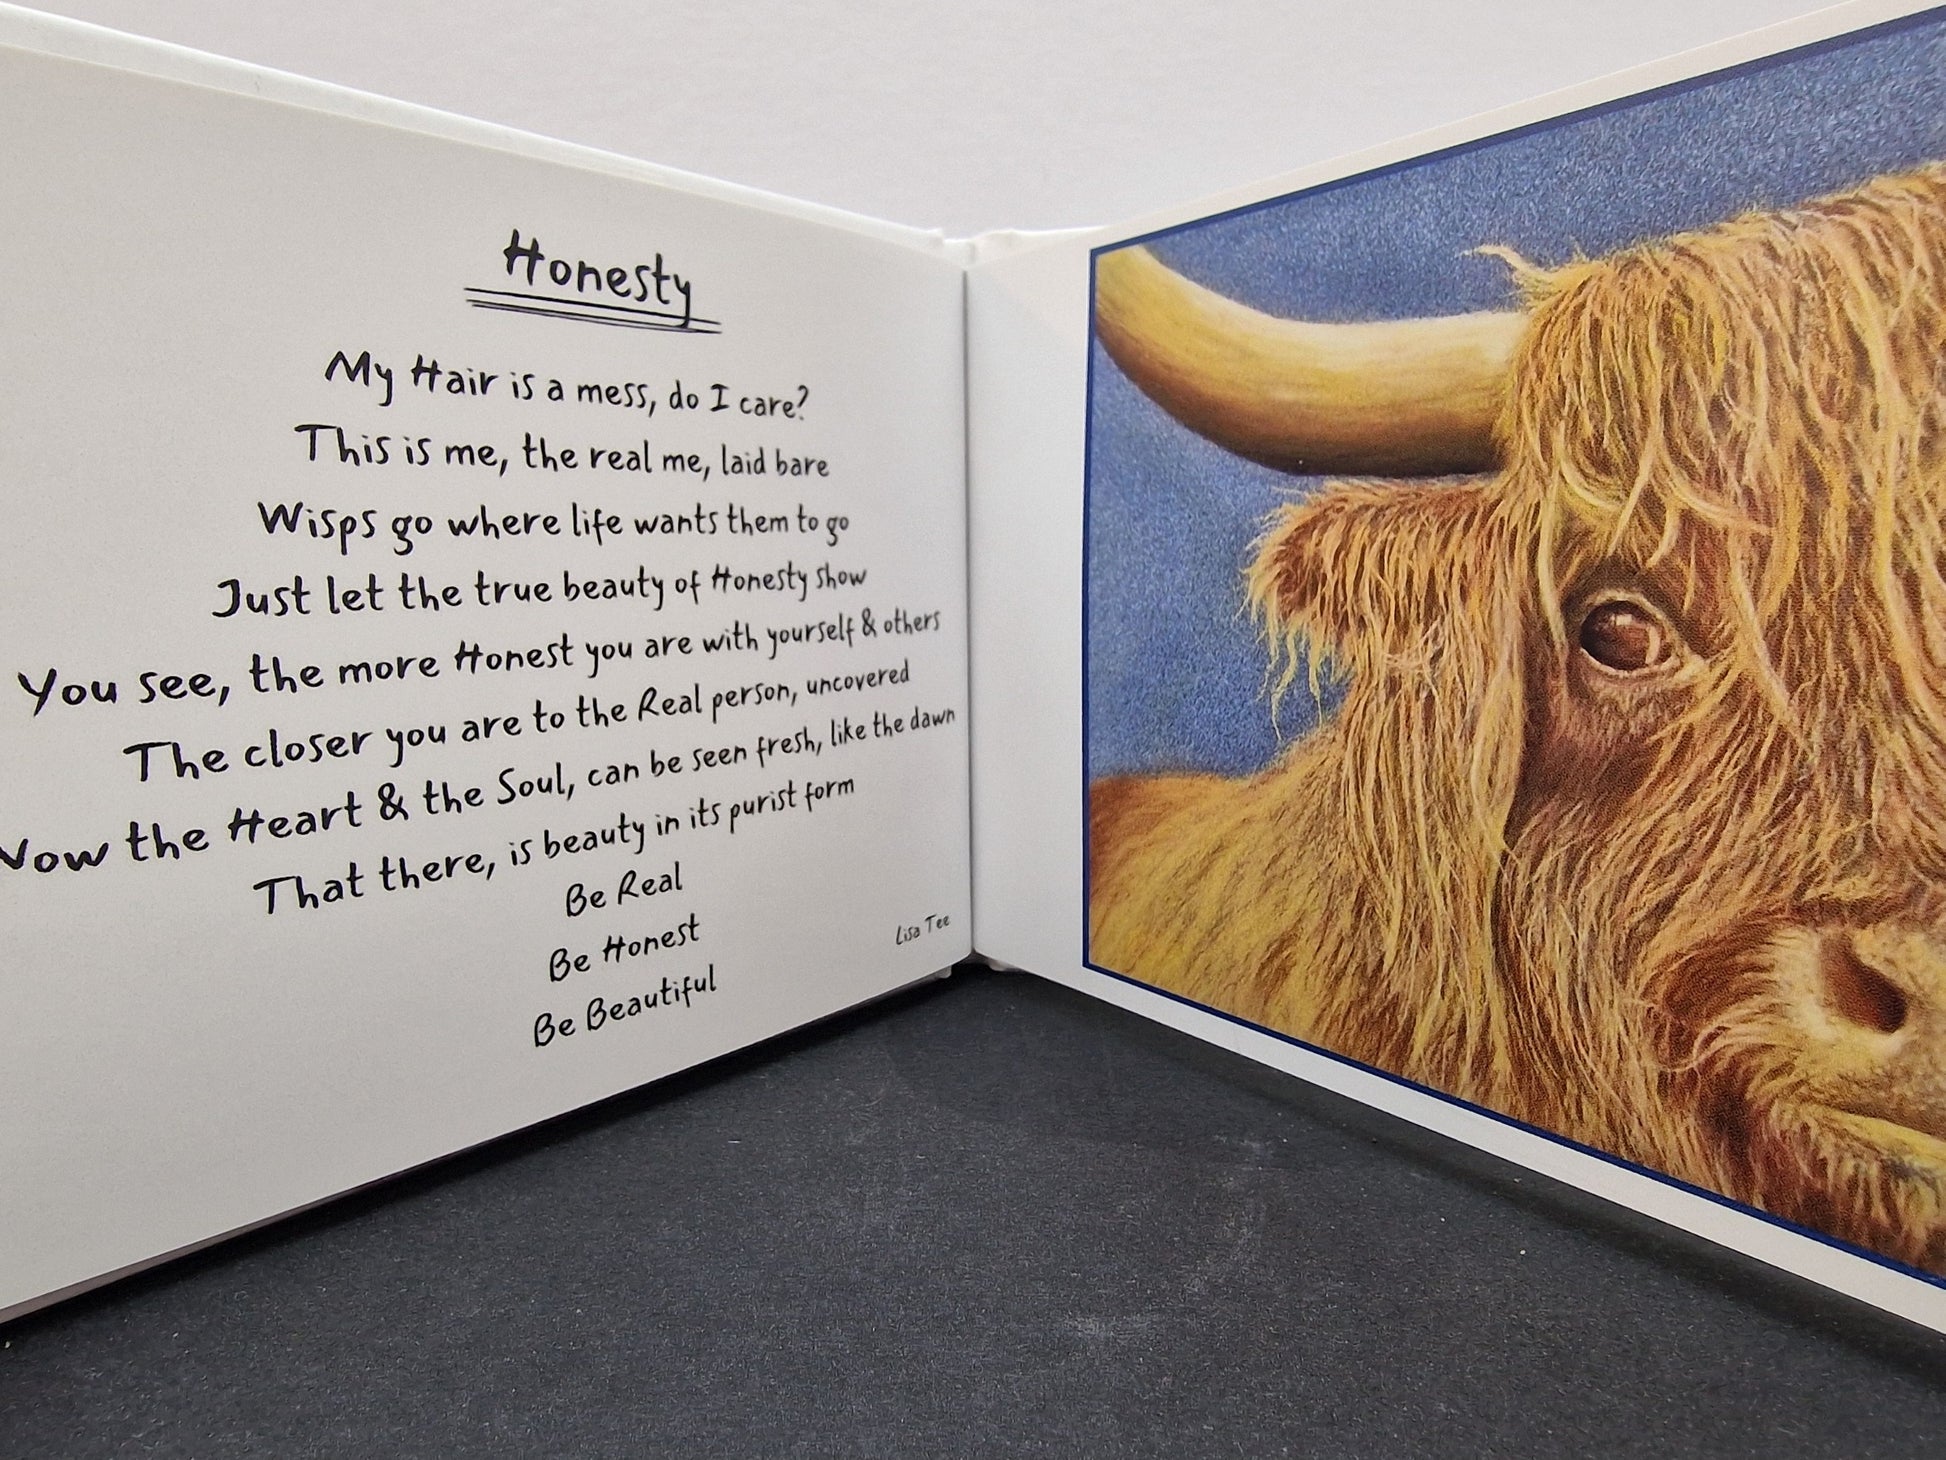 Honesty
My Hair is a mess, do I care?
This is me, the real me, laid bare
Wisps go where life wants them to go
Just let the true beauty of Honesty show
You see, the more Honest you are with yourself & others
The closer you are to the Real person, uncovered
Now the Heart & the Soul, can be seen fresh, like the dawn
That there, is beauty in its purist form
Be Real
Be Honest
Be Beautiful
Lisa Tee